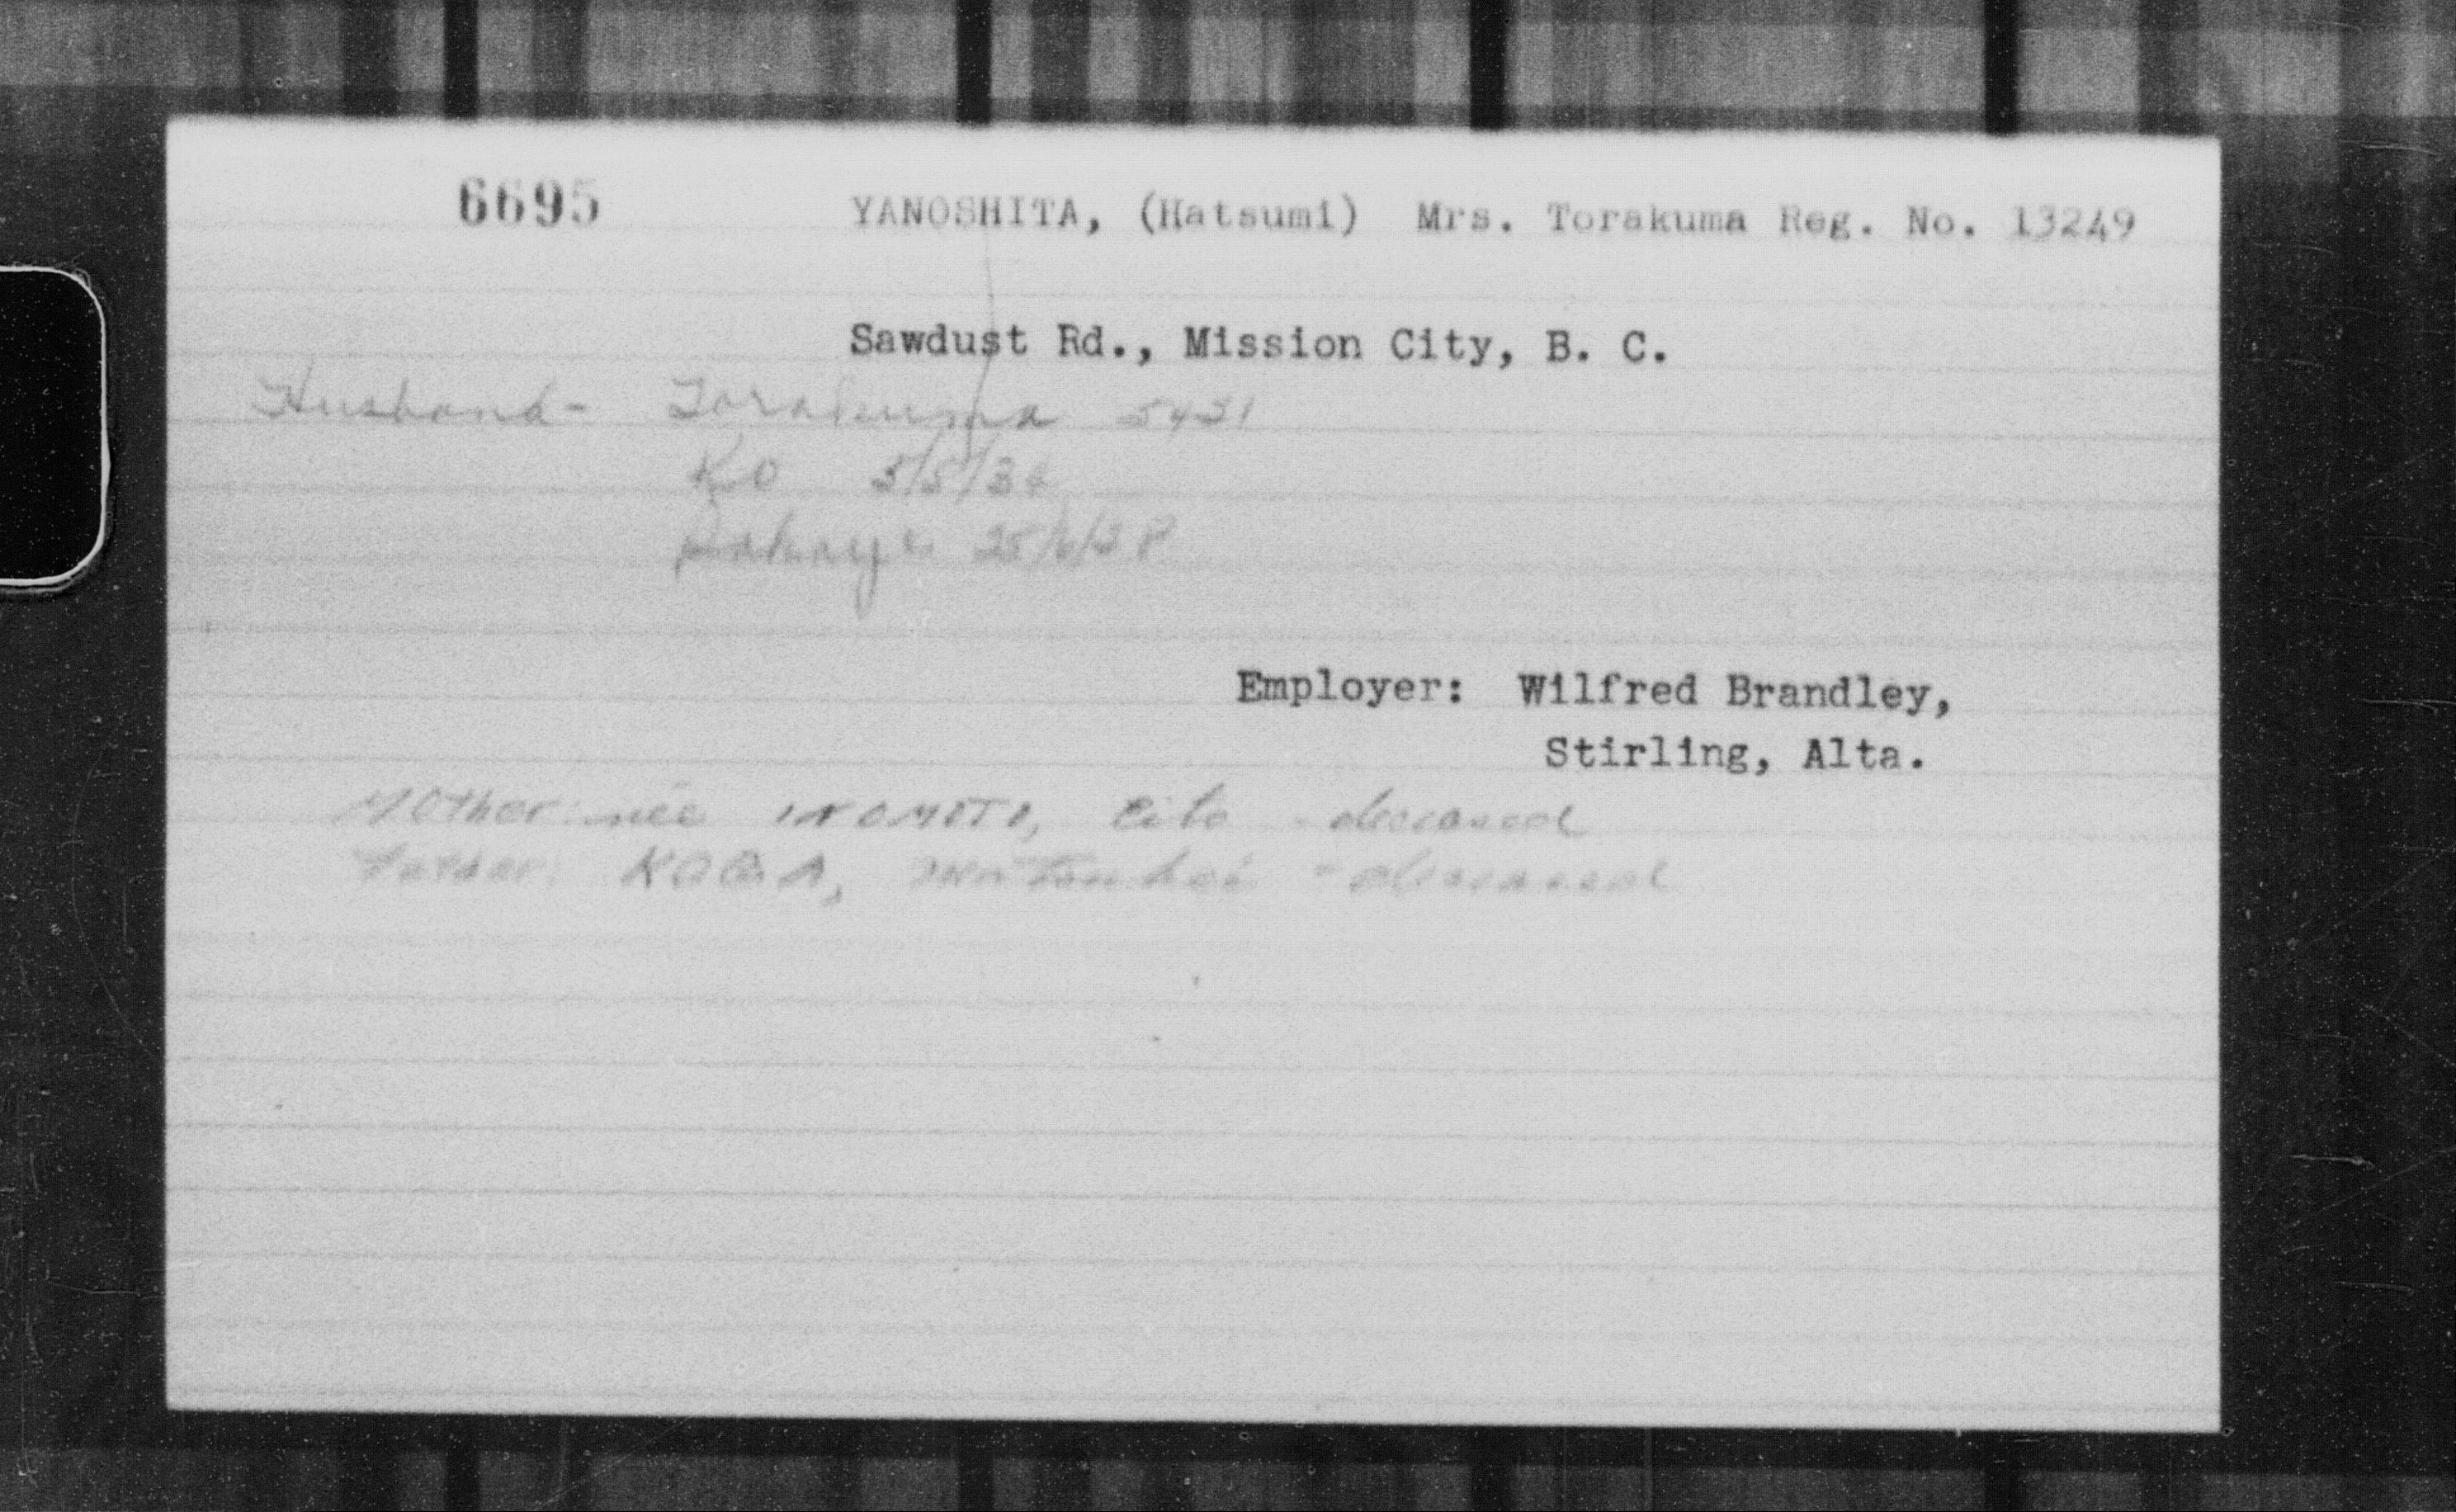 6695 YANOSHITA, (Hatsumi) Mrs. Torakuma Reg. No. 13249
Sawdust Rd., Mission City, B. C.
Husband - Torakuma 5431
KO 5/5/34
25/6/38
Employer: Wilfred Brandley,
Stirling, Alta.
Mother: née INOMOTO, - deceased
Father: KOGA, - deceased